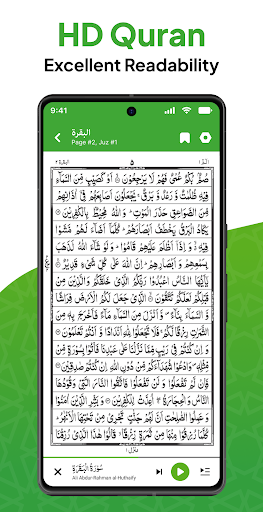 HD Quran
Excellent Readability
9:41
البقرة
Page #2, Juz #1
البقرة ٢ ٥ الٓمّٓ ١
صُمٌّۢ بُكْمٌ عُمْيٌ فَهُمْ لَا يَرْجِعُوْنَ اَوْ كَصَيِّبٍ مِّنَ السَّمَآءِ
فِيْهِ ظُلُمٰتٌ وَّرَعْدٌ وَّبَرْقٌ يَجْعَلُوْنَ اَصَابِعَهُمْ فِيْٓ اٰذَانِهِمْ
مِّنَ الصَّوَاعِقِ حَذَرَ الْمَوْتِ وَاللّٰهُ مُحِيْطٌۢ بِالْكٰفِرِيْنَ
يَكَادُ الْبَرْقُ يَخْطَفُ اَبْصَارَهُمْ كُلَّمَآ اَضَآءَ لَهُمْ مَّشَوْا
فِيْهِ وَاِذَآ اَظْلَمَ عَلَيْهِمْ قَامُوْا وَلَوْ شَآءَ اللّٰهُ لَذَهَبَ
بِسَمْعِهِمْ وَاَبْصَارِهِمْ اِنَّ اللّٰهَ عَلٰى كُلِّ شَيْءٍ قَدِيْرٌ
يٰٓاَيُّهَا النَّاسُ اعْبُدُوْا رَبَّكُمُ الَّذِيْ خَلَقَكُمْ وَالَّذِيْنَ مِنْ
قَبْلِكُمْ لَعَلَّكُمْ تَتَّقُوْنَ الَّذِيْ جَعَلَ لَكُمُ الْاَرْضَ فِرَاشًا
وَّالسَّمَآءَ بِنَآءً وَّاَنْزَلَ مِنَ السَّمَآءِ مَآءً فَاَخْرَجَ بِهٖ مِنَ
الثَّمَرٰتِ رِزْقًا لَّكُمْ فَلَا تَجْعَلُوْا لِلّٰهِ اَنْدَادًا وَّاَنْتُمْ تَعْلَمُوْنَ
وَاِنْ كُنْتُمْ فِيْ رَيْبٍ مِّمَّا نَزَّلْنَا عَلٰى عَبْدِنَا فَاْتُوْا بِسُوْرَةٍ مِّنْ
مِّثْلِهٖ وَادْعُوْا شُهَدَآءَكُمْ مِّنْ دُوْنِ اللّٰهِ اِنْ كُنْتُمْ صٰدِقِيْنَ
فَاِنْ لَّمْ تَفْعَلُوْا وَلَنْ تَفْعَلُوْا فَاتَّقُوا النَّارَ الَّتِيْ وَقُوْدُهَا
النَّاسُ وَالْحِجَارَةُ اُعِدَّتْ لِلْكٰفِرِيْنَ وَبَشِّرِ الَّذِيْنَ اٰمَنُوْا
وَعَمِلُوا الصّٰلِحٰتِ اَنَّ لَهُمْ جَنّٰتٍ تَجْرِيْ مِنْ تَحْتِهَا الْاَنْهٰرُ
كُلَّمَا رُزِقُوْا مِنْهَا مِنْ ثَمَرَةٍ رِّزْقًا قَالُوْا هٰذَا الَّذِيْ رُزِقْنَا
منزل ١
سُوْرَةُ الْبَقَرَةِ
Ali Abdur-Rahman al-Huthaify